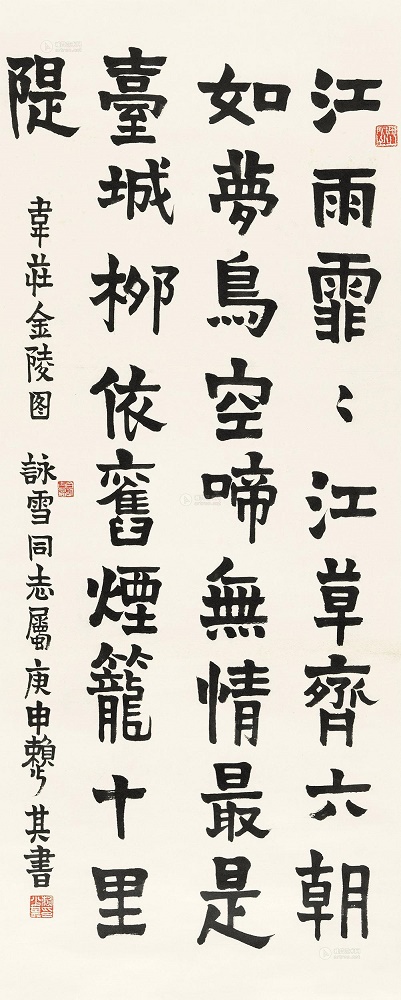 江雨霏〻江草齊六朝
如夢鳥空啼無情最是
臺城桺依舊煙籠十里
隄
韋莊金陵图 詠雪同志屬庚申賴少其書